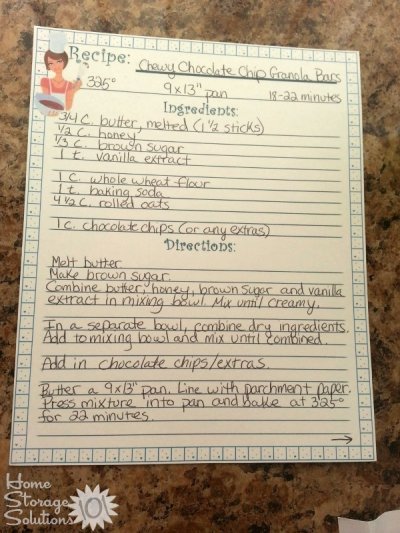 Recipe: Chewy Chocolate Chip Granola Bars
325° 9x13" pan 18-22 minutes
Ingredients:
3/4 c. butter, melted (1 1/2 sticks)
1/2 c. honey
1/3 c. brown sugar
1 t. vanilla extract
1 c. whole wheat flour
1 t. baking soda
4 1/2 c. rolled oats
1 c. chocolate chips (or any extras)
Directions:
Melt butter
Make brown sugar.
Combine butter, honey, brown sugar and vanilla
extract in mixing bowl. Mix until creamy.
In a separate bowl, combine dry ingredients.
Add to mixing bowl and mix until combined.
Add in chocolate chips/extras.
Butter a 9x13" pan. Line with parchment paper.
Press mixture into pan and bake at 325°
for 22 minutes.
Home
Storage
Solutions